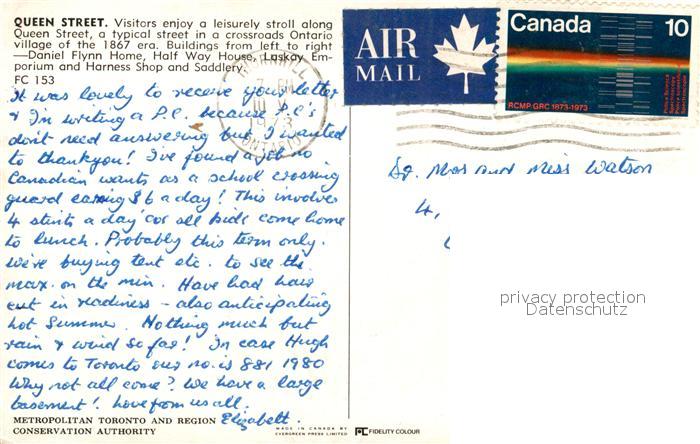 QUEEN STREET. Visitors enjoy a leisurely stroll along
Queen Street, a typical street in a crossroads Ontario
village of the 1867 era. Buildings from left to right
—Daniel Flynn Home, Half Way House, Laskay Em-
porium and Harness Shop and Saddlery.
FC 153
It was lovely to receive your letter
& I'm writing a P.C. because P.C's
don't need answering but I wanted
to thankyou! I've found a job no
Canadian wants as a school crossing
guard earning $6 a day! This involves
4 stints a day cos all kids come home
to lunch. Probably this term only.
We're buying tent etc. to see the
max. on the min. Have had hair
cut in readiness - also anticipating
hot Summer. Nothing much but
rain & wind so far! In case Hugh
comes to Toronto our no. is 881 1980
Why not all come? We have a large
basement! Love from us all.
Elizabeth.
METROPOLITAN TORONTO AND REGION
CONSERVATION AUTHORITY
MADE IN CANADA BY
EVERGREEN PRESS LIMITED
FIDELITY COLOUR
AIR
MAIL
Canada 10
RCMP GRC 1873-1973
1973
ONTARIO
Mrs and Miss Watson
4,
privacy protection
Datenschutz